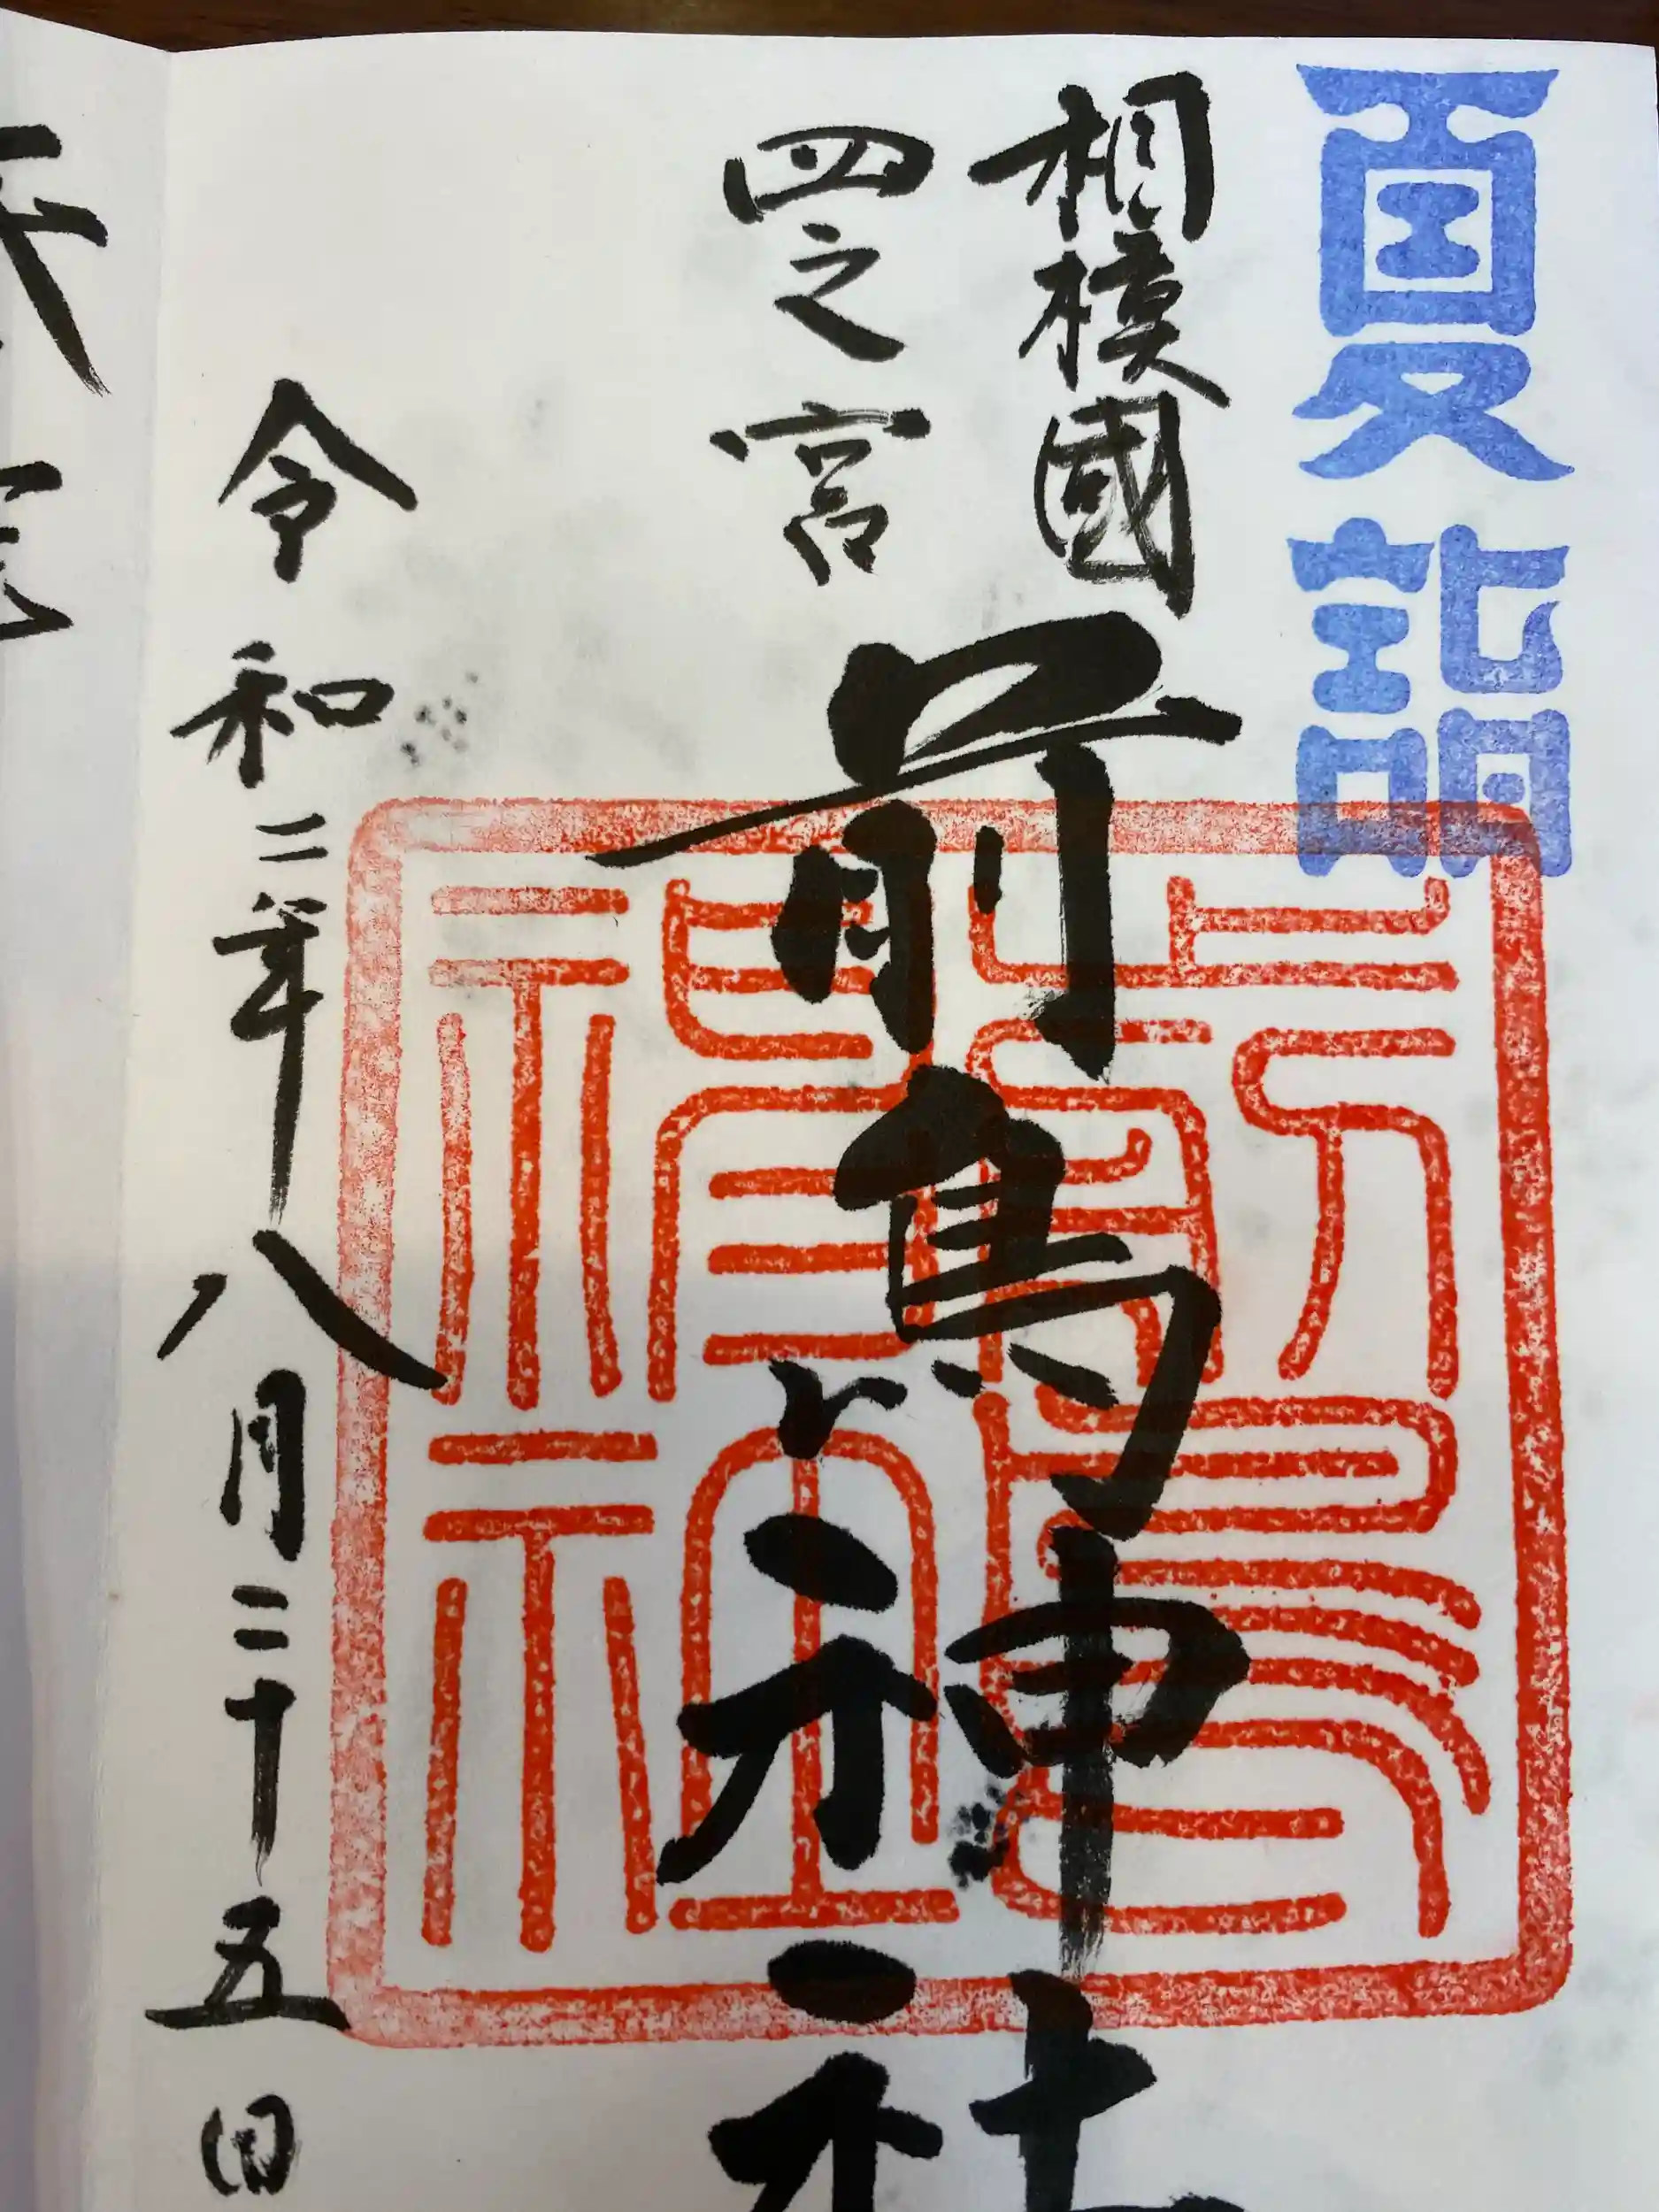 夏詣
相模國
四之宮
前鳥神社
令和二年八月二十五日